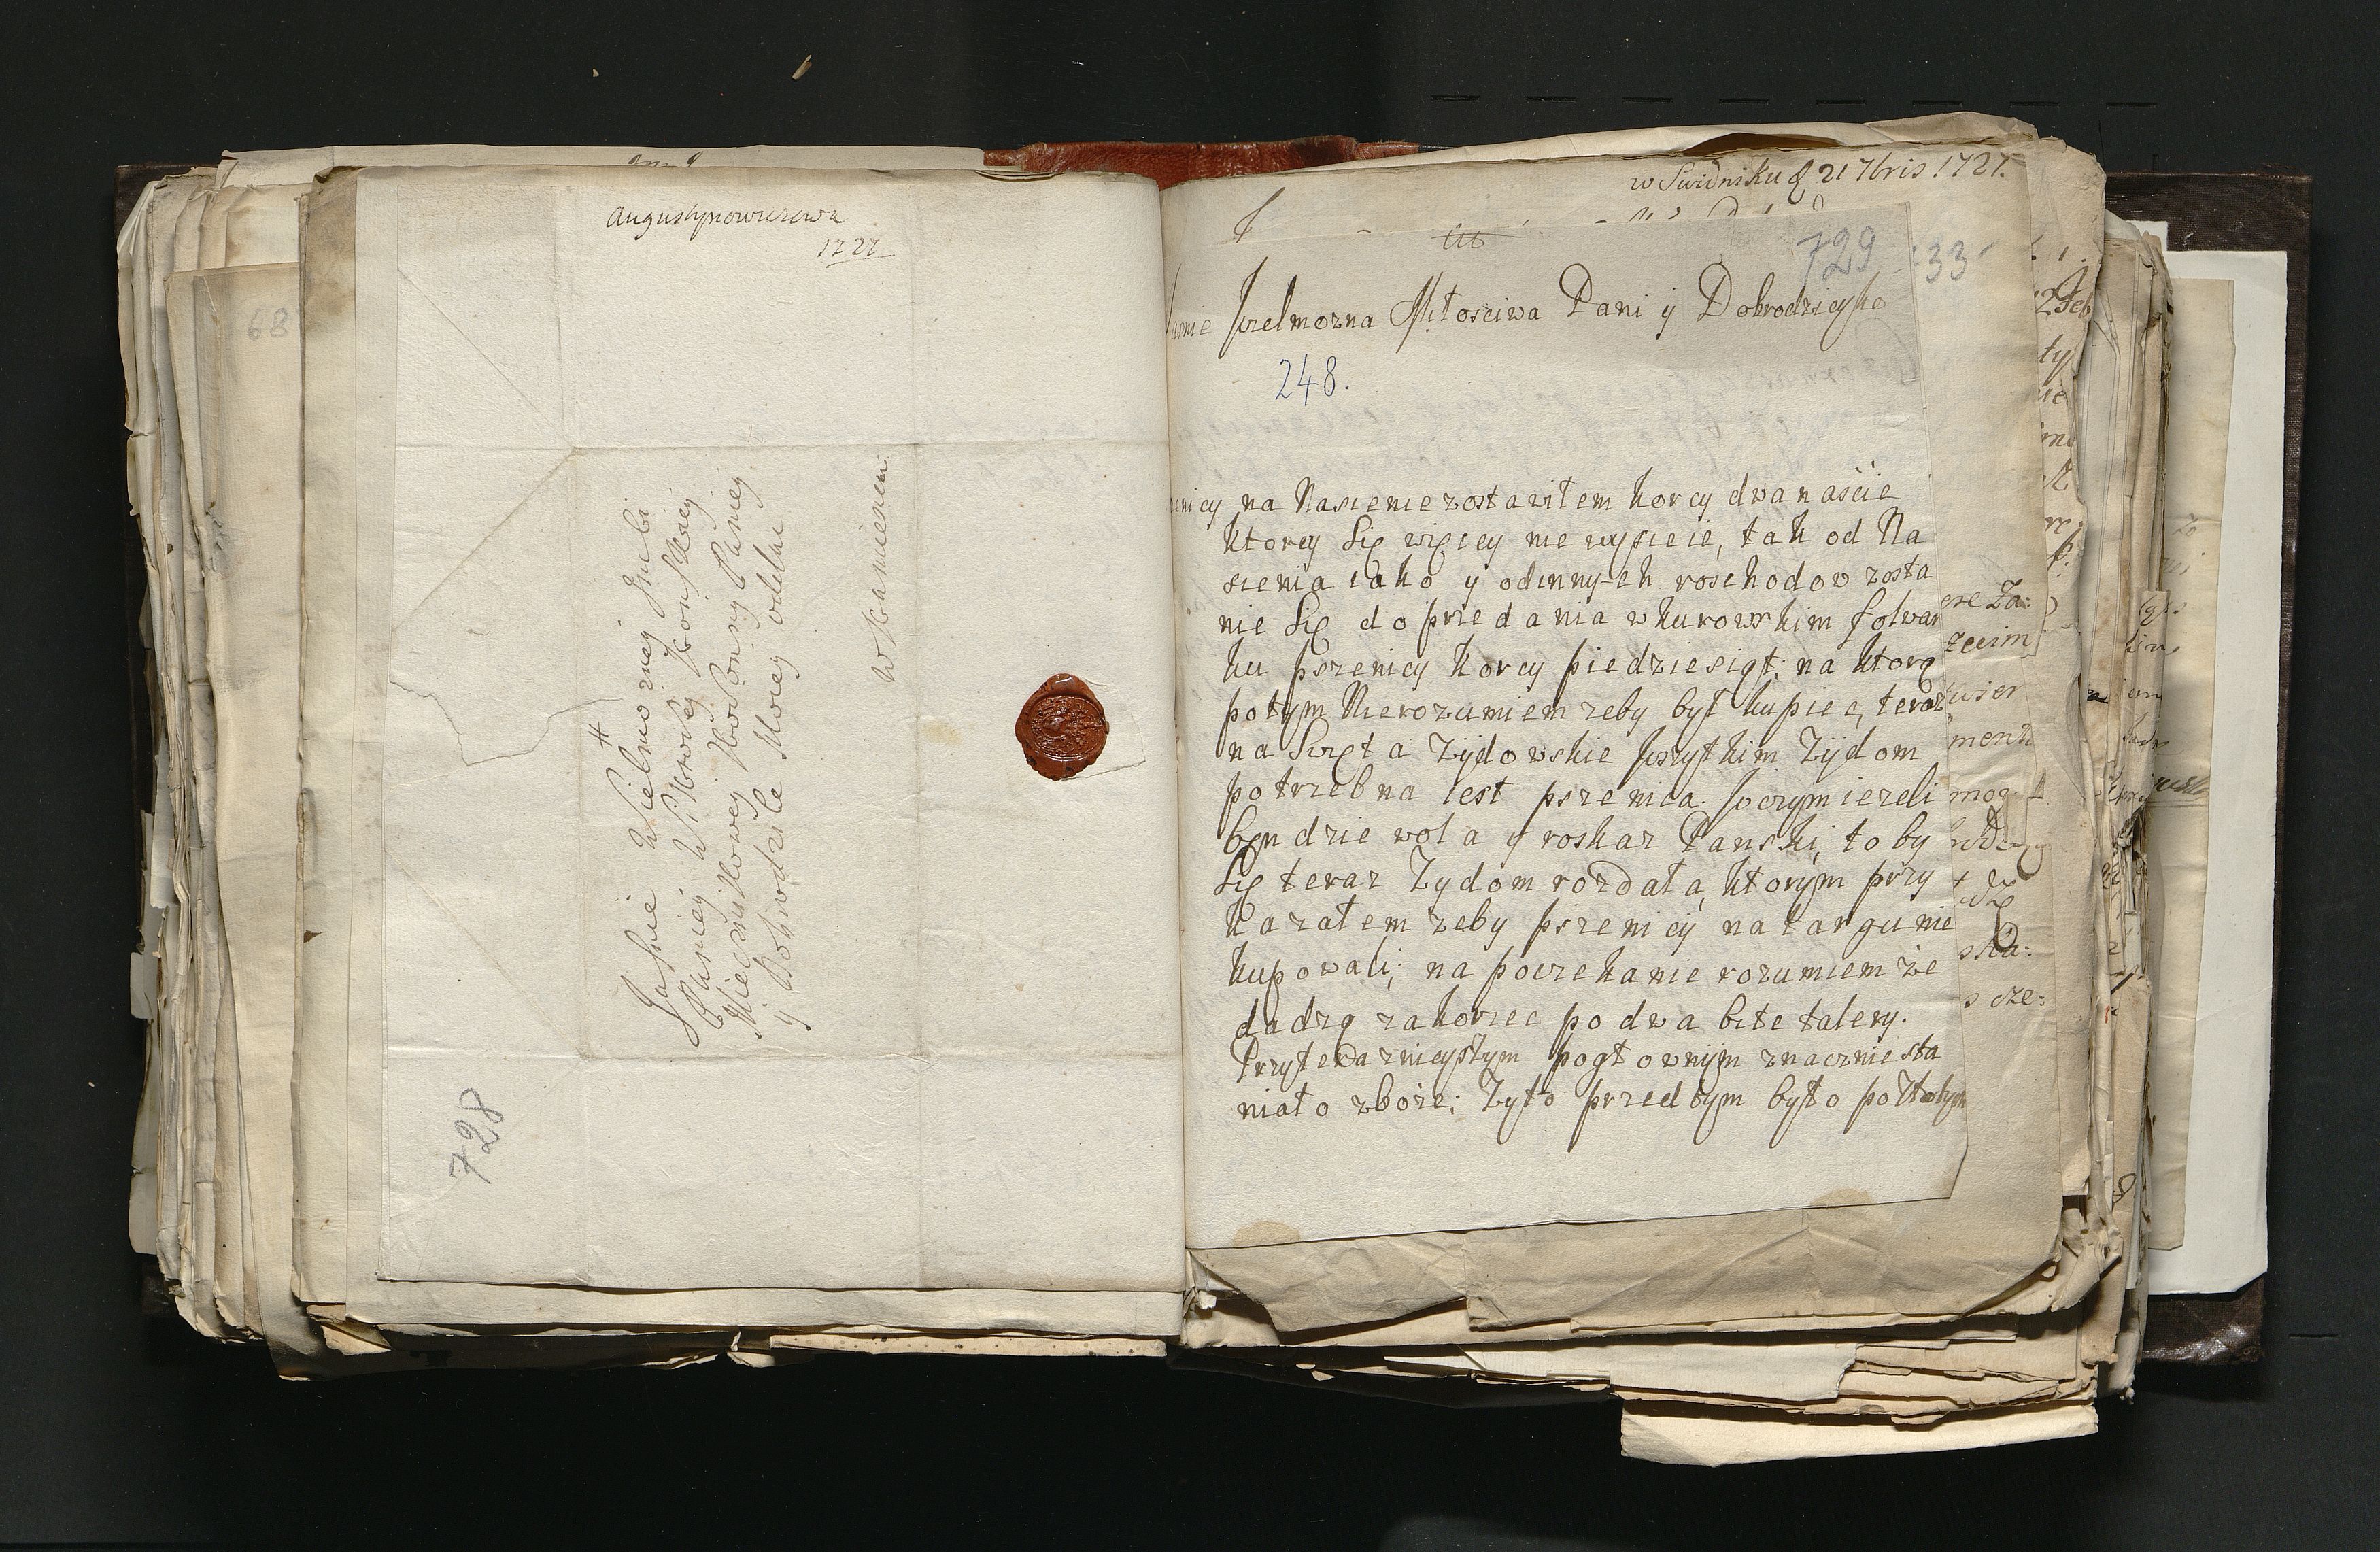 Augustynowiczowa
1727
#
Jaśnie Wielmożney Gmbi
Paniey Wiktoryey Końskiey
Miecznikowey Koronney Paniey
y Dobrodzice Moiey oddac
w Kamieniu
728
68
w Swidniku d 21 7bris 1727.
729
33
Jasnie Wielmozna Miłosciwa Pani y Dobrodzieyko
248.
enicy na Nasienie zostawiłem korcy dwanaście
ktorey się więcey nie wysieie, tak od Na
sienia iako y od innych roschodow zosta
nie Się do przedania w kurowskim folwar
ku pszenicy korcy piedziesiąt; na ktorą
potym Nierozumiem zeby był kupiec, teraz
na Swęta Zydowskie wszytkim Zydom
potrzebna iest pszenica. Wczym iezeli
bęndzie wola y roskaz Panski, to by
Się teraz Zydom rozdała, ktorym przy
kazałem zeby pszenicy na targu nie
kupowali; na poczekanie rozumiem że
dadzą za korzec po dwa bite talery.
Przyterazniejszym pogłownym znacznie sta
niało zboże; Zyto przed tym było po
ere Za:
zecim
wier
ment
mog
ska:
s cze: